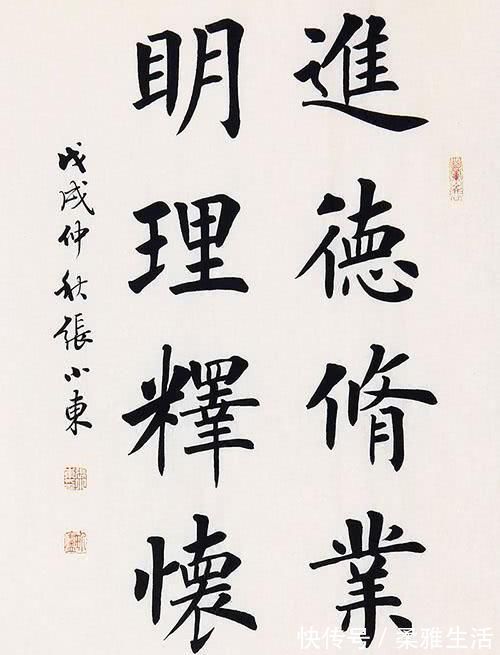 進德脩業
明理釋懷
戊戌仲秋張小東
快传号/柔雅生活